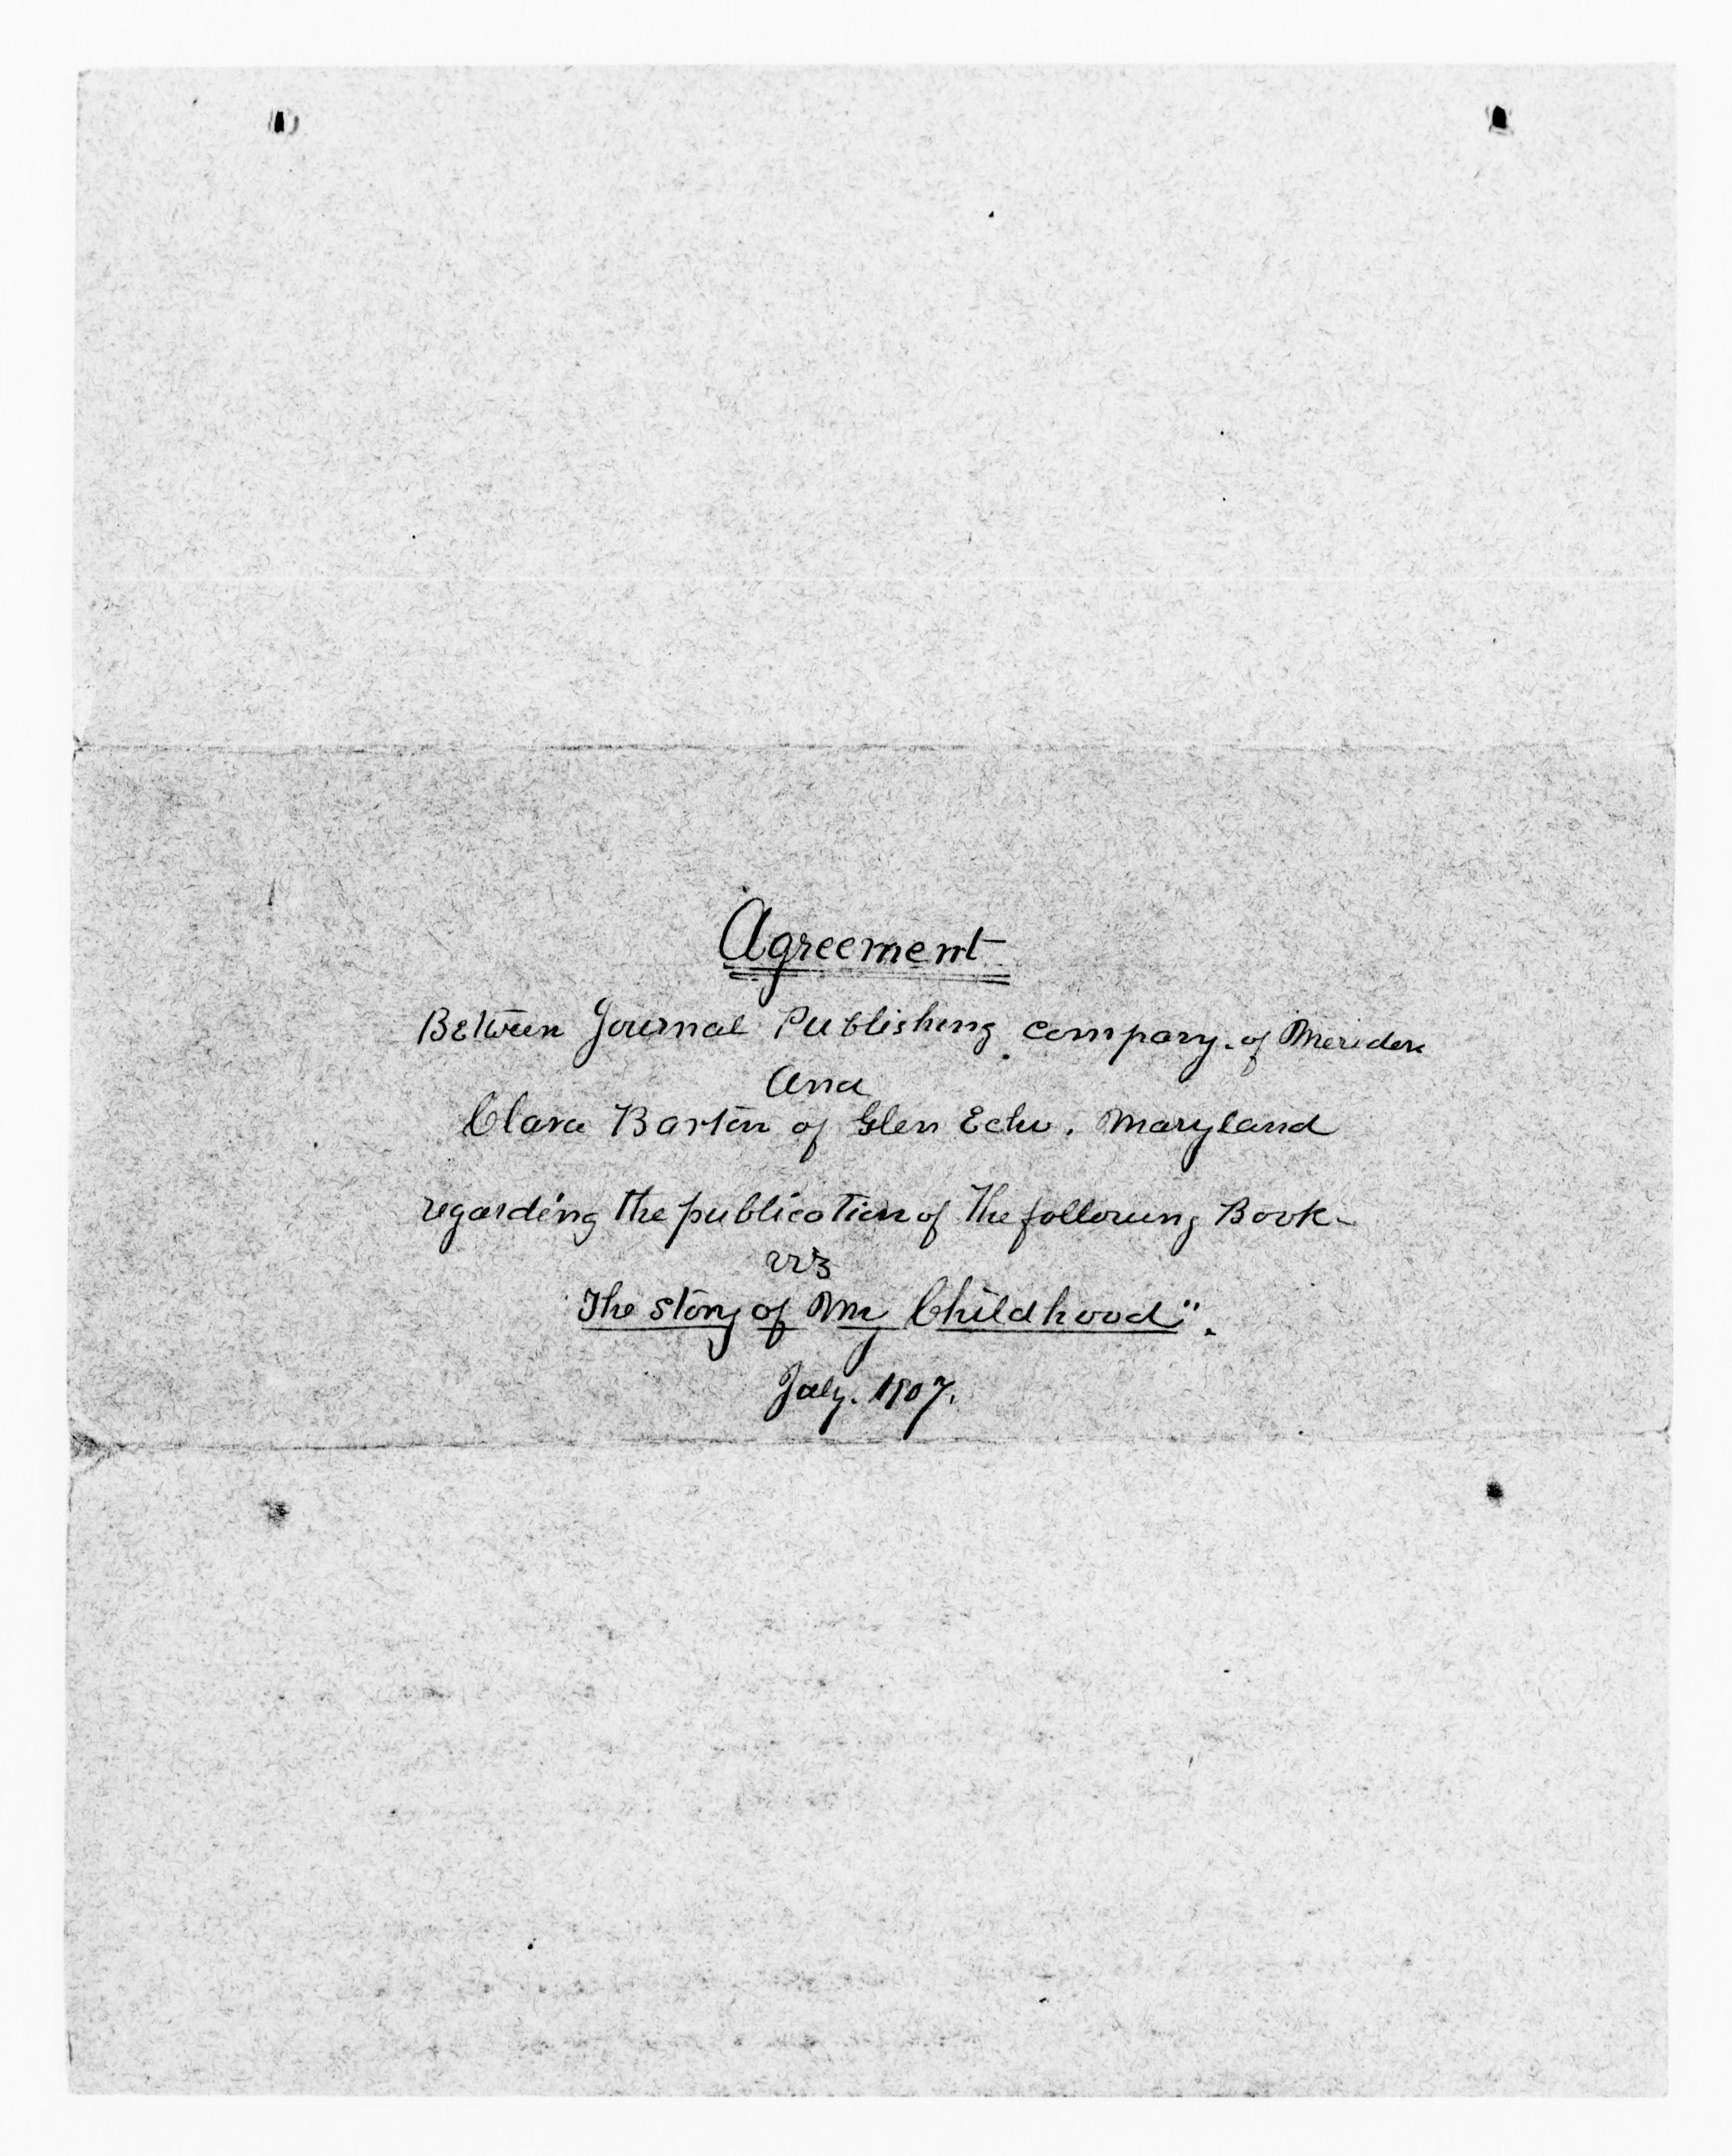 Agreement
Between Journal Publishing company. of Meriden
And
Clara Barton of Glen Echo. Maryland
regarding the publication of The following Book-
viz
The story of My Childhood".
July. 1907.